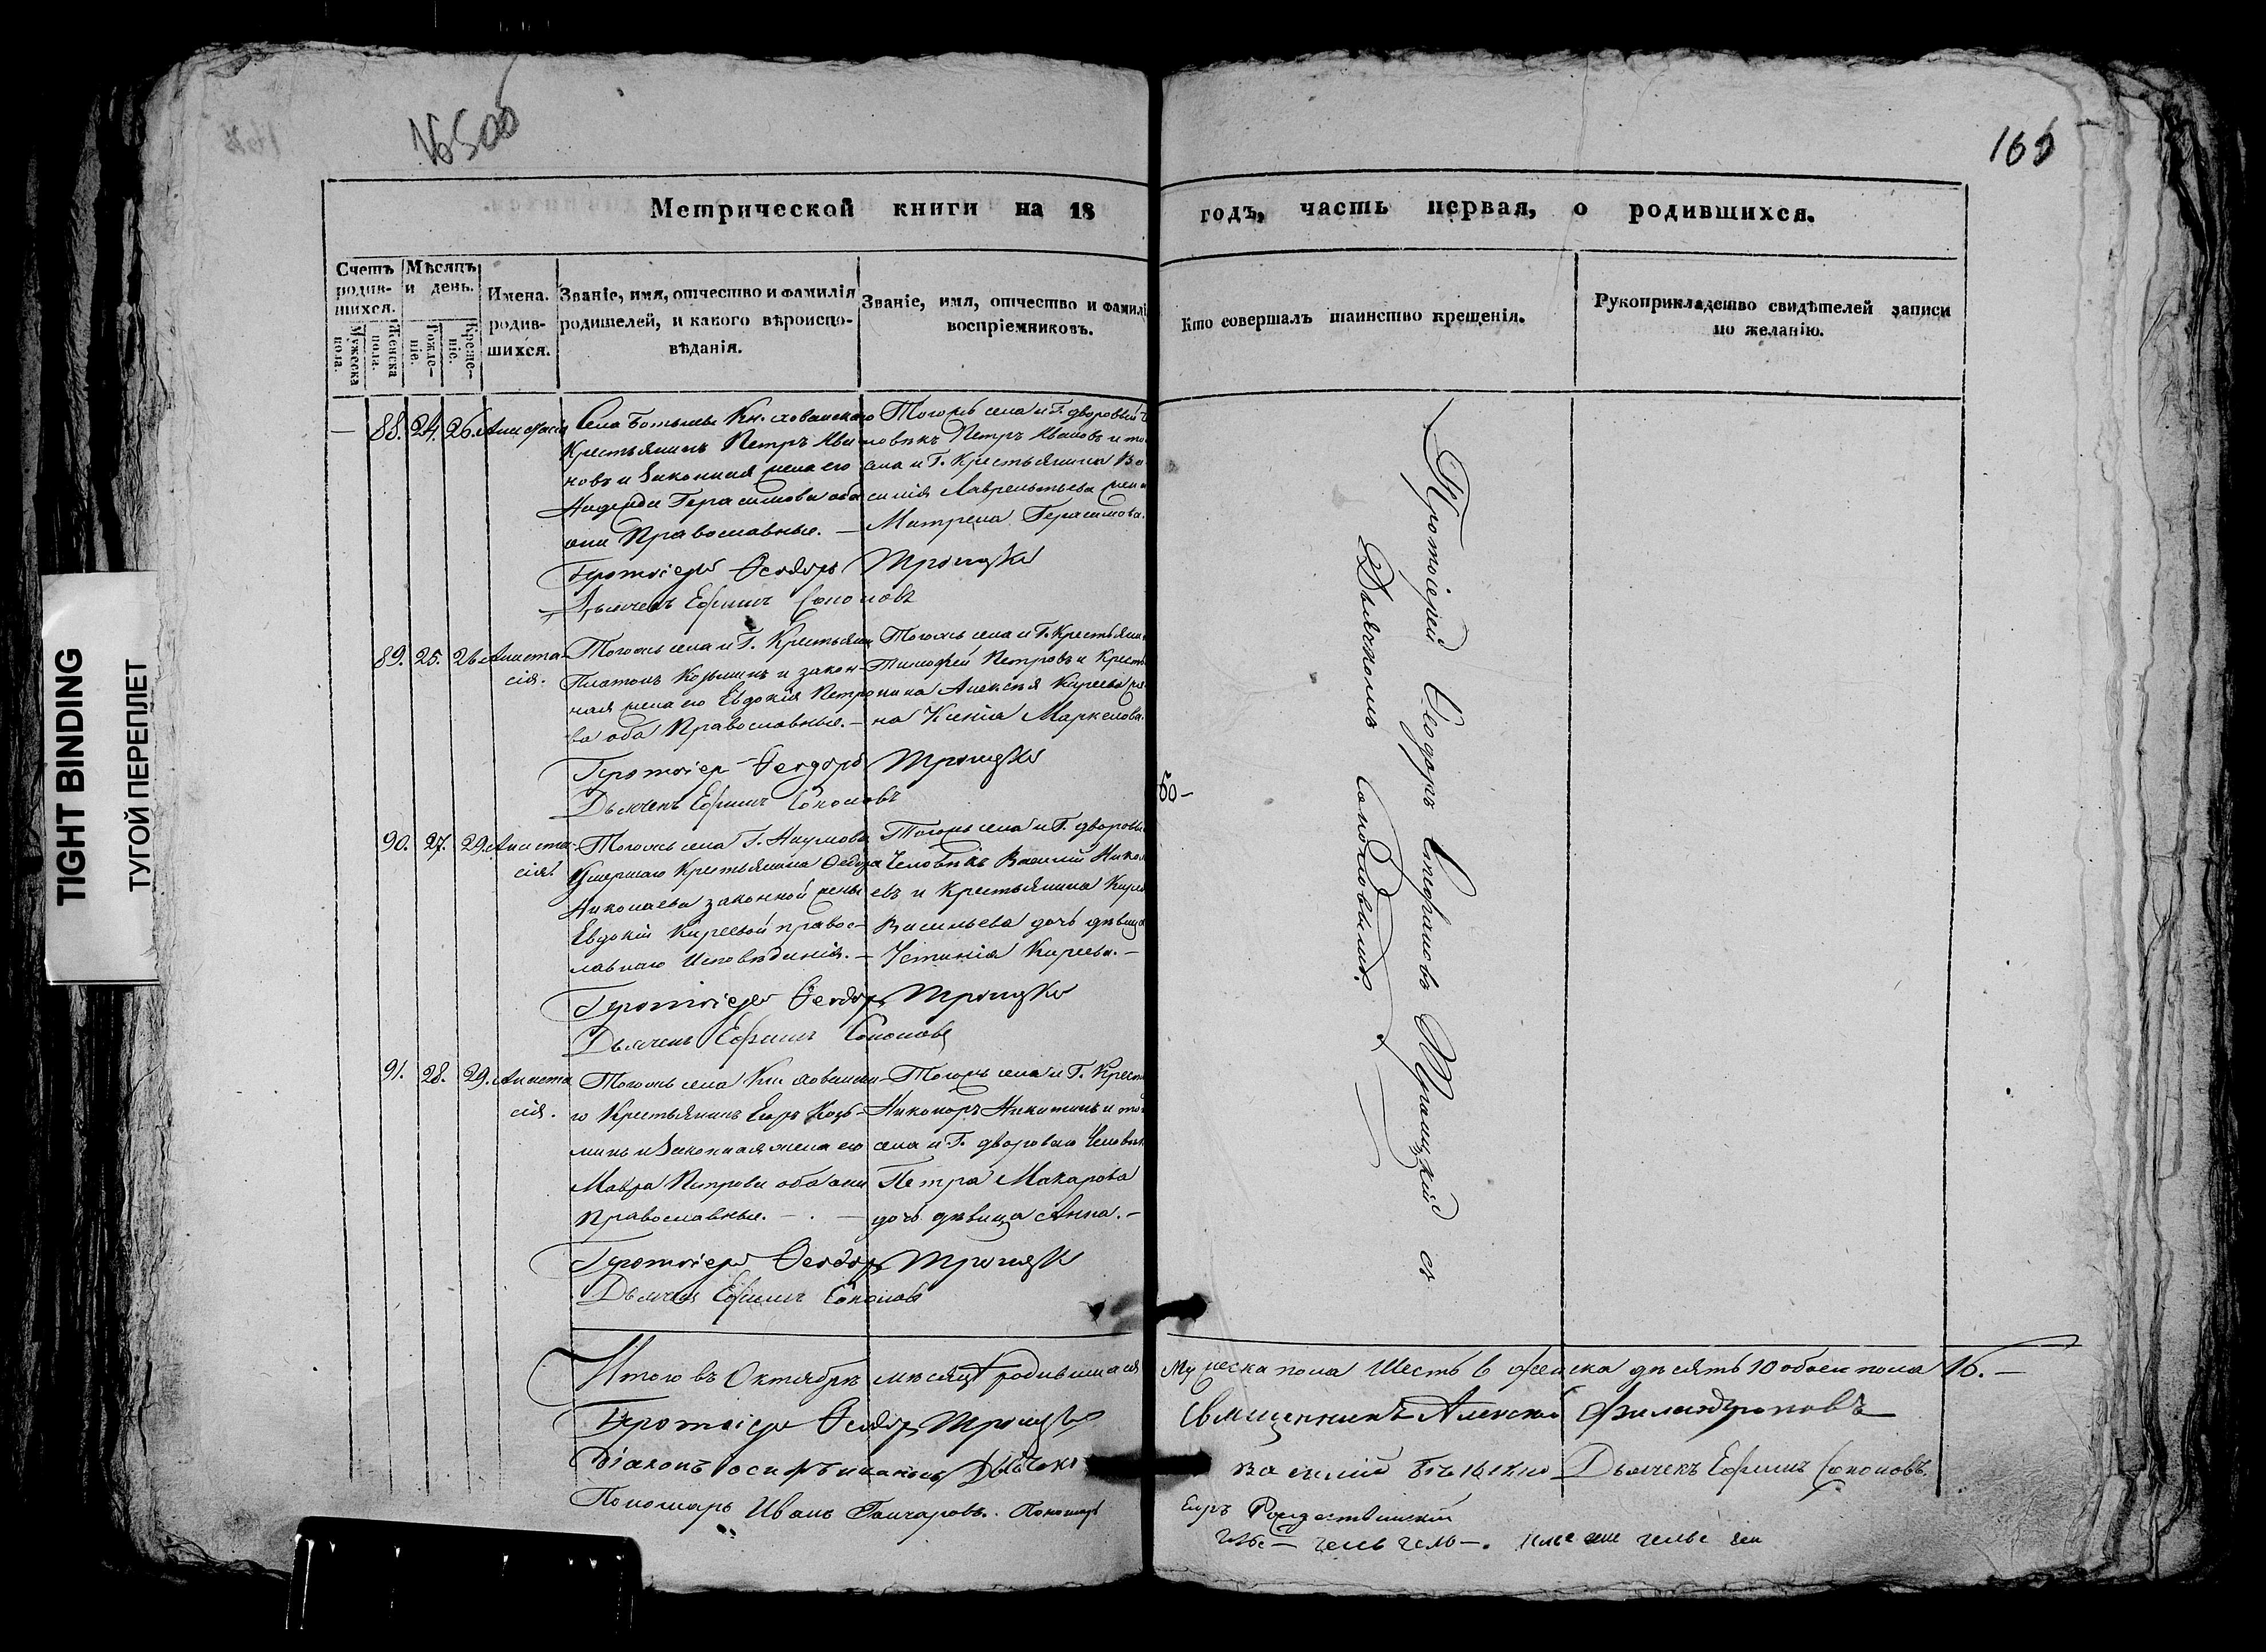 165
Метрической книги на 18 годъ, часть первая, о родившихся.
Счетъ родив-шихся.
Мужеска пола.
Женска пола.
Мѣсяцъ и день.
Рожде-ніе.
Креще-ніе.
Имена родив-шихся.
Званіе, имя, отчество и фамилія
родителей, и какого вѣроиспо-
вѣданія.
Званіе, имя, отчество и фамилі
воспріемниковъ.
Кто совершалъ таинство крещенія.
Рукоприкладство свидѣтелей записи
по желанію.
88. 24. 26. Анастасія
Села Кн.
Крестьянинъ Петръ Ива
новъ и Законная жена его
Надежда Герасимова оба
они Православные. —
Тогожъ села и Г. дворовый ч
ловѣкъ Петръ Ивановъ и то
села и Г. Крестьянина Ва
силія Лаврентьева жена
Матрена Герасимова.
Протоіерей Ѳеодоръ Троицкій
Дьячекъ Ефимъ Соколовъ
89. 25. 26 Анаста-
сія.
Тогожъ села и Г. Крестьянин
Платонъ Козьминъ и закон-
ная жена его Евдокія Петро
ва оба Православные. —
Тогожъ села и Г. Крестьянин
Тимофей Петровъ и Кресть
янина Алексѣя Киреева же
на Ксенія Маркелова.
Протоіер Ѳеодоръ Троицкій
Дьячекъ Ефимъ Соколовъ
90. 27. 29. Анаста-
сія.
Тогожъ села Г. Наумова
Умершаго Крестьянина Ѳедора
Николаева законной жены
Евдокіи Киреевой правос-
лавнаго Исповѣданія. —
Тогожъ села и Г. дворовы
Человѣкъ Василій Никола
евъ и Крестьянина Кирея
Васильева дочь дѣвица
Устинія Киреева. —
Протоіерей Ѳеодоръ Троицкій
Дьячекъ Ефимъ Соколовъ
91. 28. 29. Анаста
сія.
Тогожъ села Кн.
го Крестьянинъ Егоръ Козь-
минъ и Законная жена его
Мавра Петрова оба они
Православные. — . —
Тогожъ села и Г. Кресть
Никоноръ Никитинъ и тог
села и Г. двороваго Человѣк
Петра Макарова
дочь дѣвица Анна. —
Протоіерей Ѳеодоръ Троицкій
Дьячекъ Ефимъ Соколовъ
Протоіерей Ѳеодоръ Стефановъ Троицкій съ
Дьячкомъ Соколовымъ.
Итого въ Октябрѣ мѣсяцѣ родившихся Мужеска пола Шесть 6 женска десять 10 обоего пола 16. —
Протоіерей Ѳеодоръ Троицкій
Священникъ Алексій Филантроповъ
Дьячекъ Ефимъ Соколовъ.
Пономарь Иванъ Гончаровъ. Пономарь
Егоръ Рождественскій
TIGHT BINDING
ТУГОЙ ПЕРЕПЛЕТ